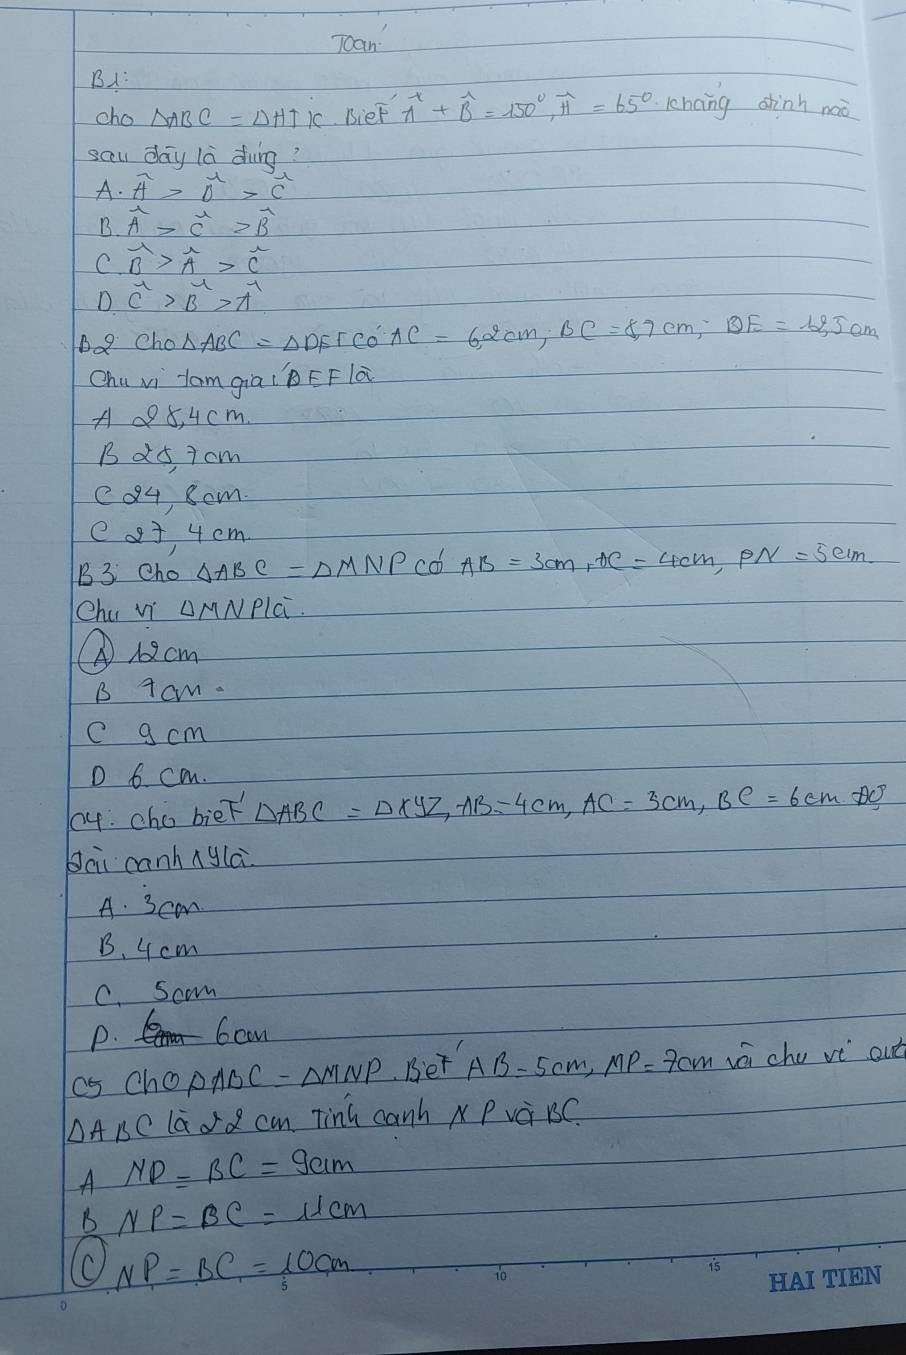 Toán
B1:
cho ΔABC = ΔHIK. Biết Â + B̂ = 150°, Ĥ = 65°. Khẳng định nào
sau đây là đúng?
A. Â > B̂ > Ĉ
B. Â > Ĉ > B̂
C B̂ > Â > Ĉ
D. Ĉ > B̂ > Â
B2: Cho ΔABC = ΔDEF Có AC = 6,2cm; BC = 8,7cm; DE = 12,5cm
Chu vi tam giác DEF là
A 28,4cm.
B 28,7cm
C 24,8cm.
C 27,4cm.
B3: Cho ΔABC = ΔMNP có AB = 3cm, AC = 4cm, PN = 5cm.
Chu vi ΔMNP là.
A 12cm
B 7cm.
C 9cm
D 6 cm.
C4: cho biết ΔABC = ΔXYZ, AB = 4cm, AC = 3cm, BC = 6cm. Độ
dài cạnh XY là.
A. 3cm
B. 4cm
C. 5cm
D. 6cm
C5 Cho ΔABC = ΔMNP. Biết AB = 5cm, MP = 7cm và chu vi của
ΔABC là 22 cm. Tính cạnh NP và BC.
A NP = BC = 9cm
B NP = BC = 11cm
C NP = BC = 10cm
0 5 10 15
HAI TIEN